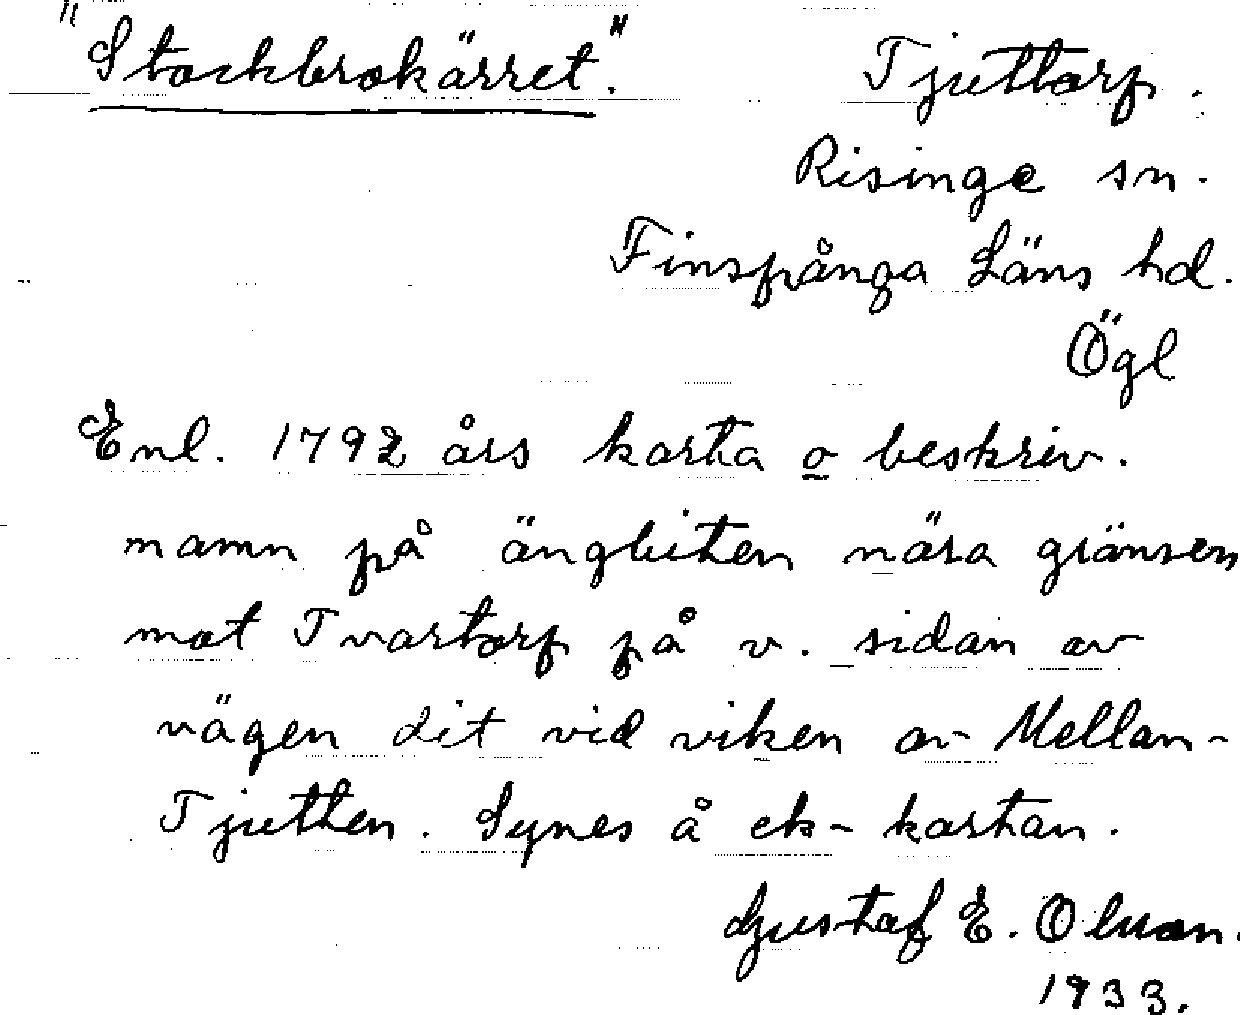 "Stockbrokärret." Tjuttorp.
Risinge sn.
Finspånga Läns hd.
Ögl
Enl. 1792 års karta o beskriv.
namn på ängbiten nära gränsen
mot Tvartorp på v. sidan av
vägen dit vid viken av Mellan-
Tjutten. Synes å ek-kartan.
Gustaf E. Olsson.
1933.